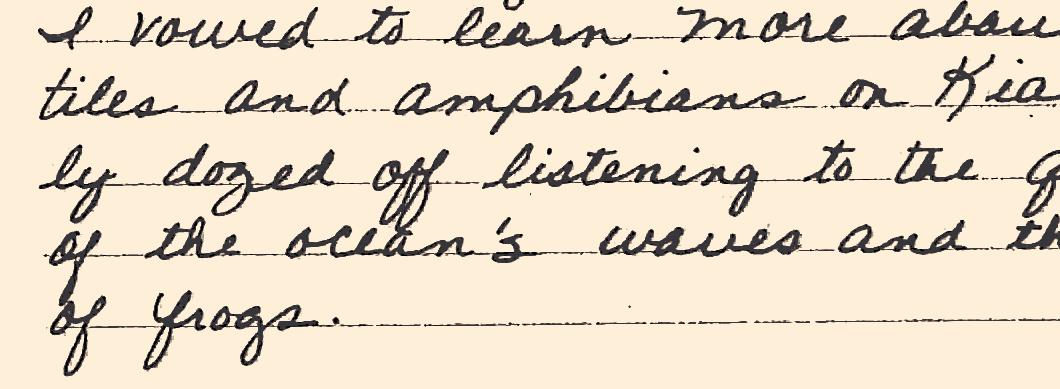 I vowed to learn more abou
tiles and amphibians on Kia
ly dozed off listening to the
of the ocean's waves and th
of frogs.